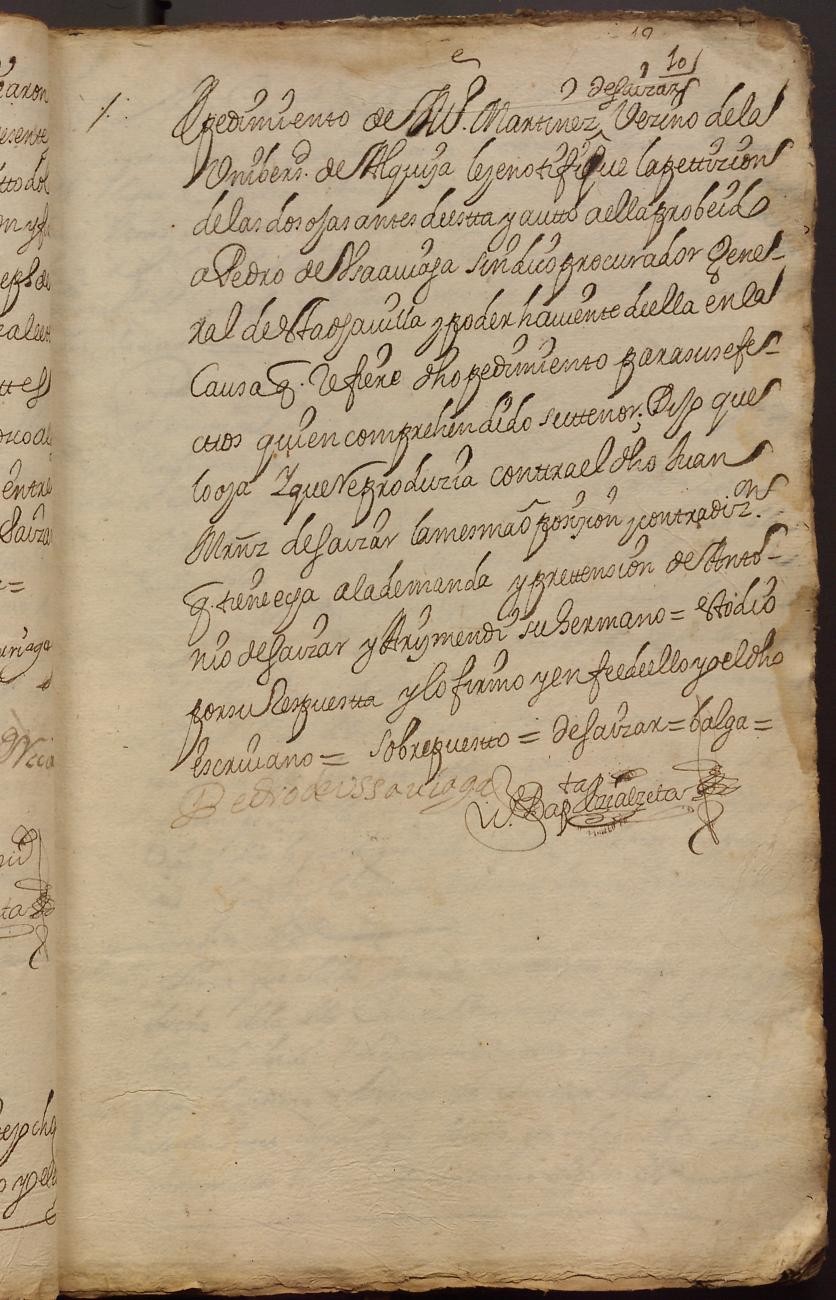 19
10
desaizar
A pedimiento de Ju.º Martinez Vezino dela
Vnibersd. de Alquiza leyenotifique lapettizion
delas dos ojas antes deestta y autto aella probeido
a Pedro de Ysaauiaga sindico procurador Gene-
ral de sta dha uilla y poder haviente deella en la
Causa q. Refiere dho pedimiento para sus efe-
cttos quien comprehendido su ttenor; Dijo que
lo oja y que Reproduzia contra el dho Juan
Mrñz de saizar la mesma oposizion y contradiz.on
q. tiene eya a la demanda y prettension de Anto-
nio de saizar y Arizmendi su hermano = esto dio
por su Respuestta y lo firmo y en fee de ello yo el dho
escriuano = sobrepuesto = de saizar = balga =
Pedro de yssauiaga
Ju. Bapta Vzialzeta